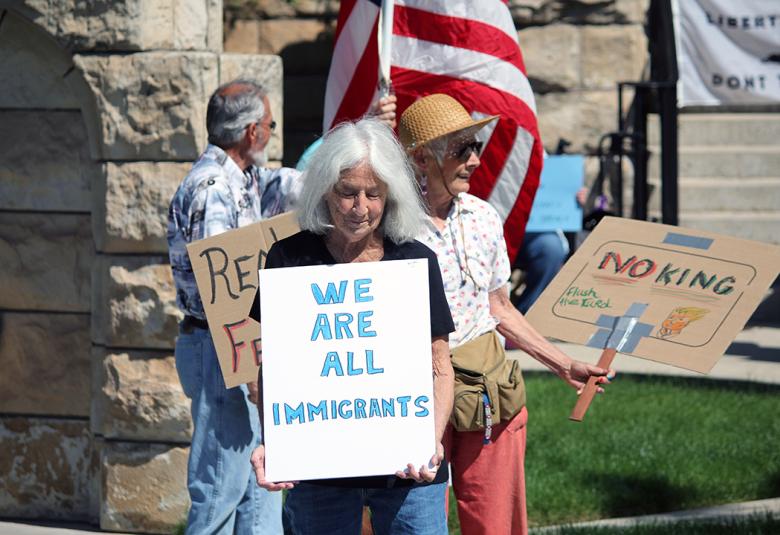 WE
ARE
ALL
IMMIGRANTS
NO KING
Flush
the Turd
DONT